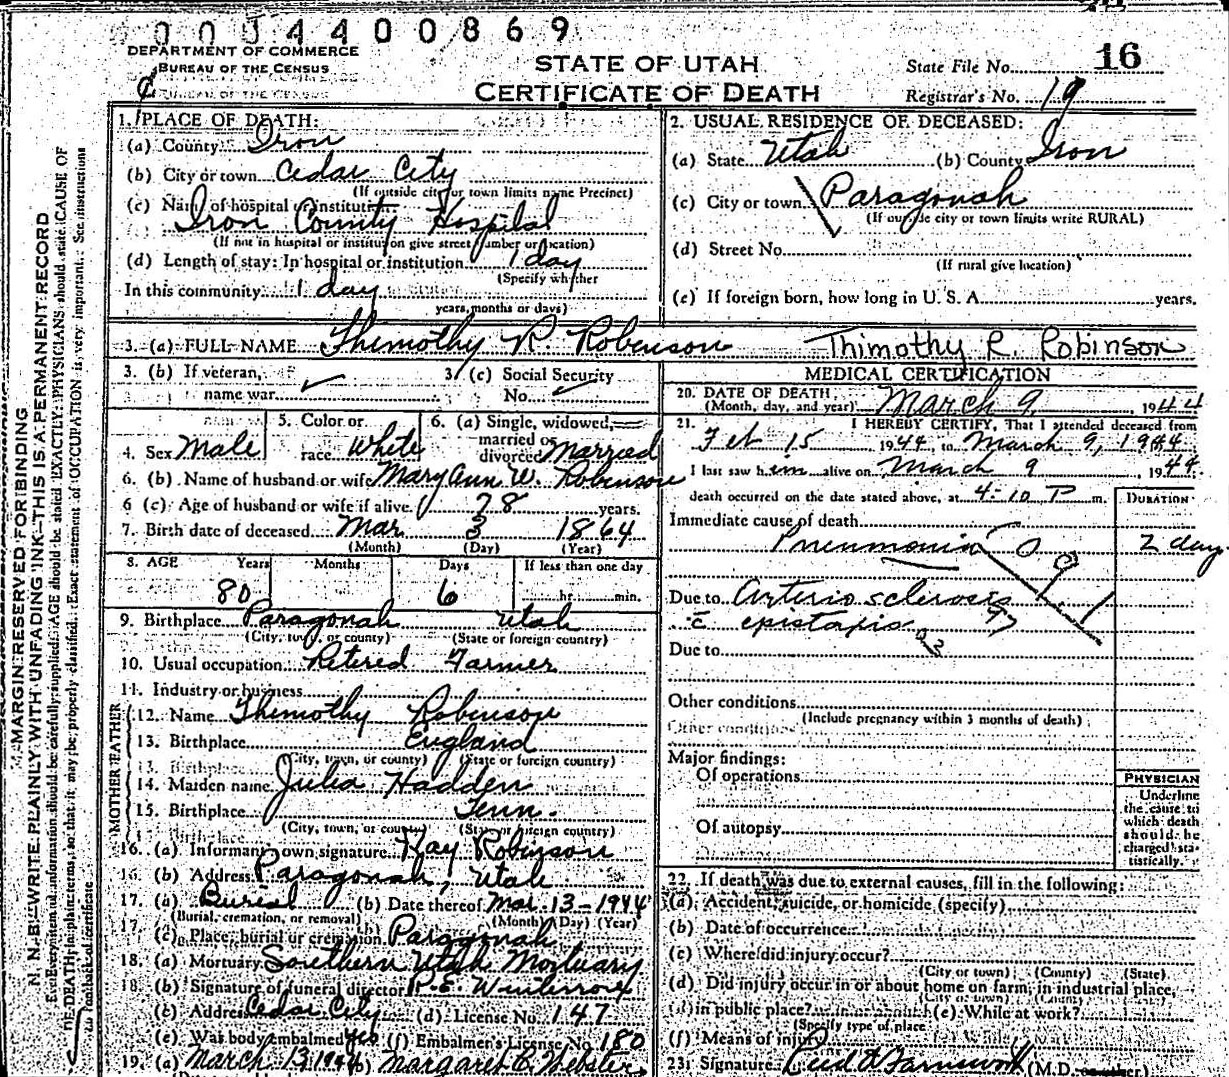 0003440 0869
DEPARTMENT OF COMMERCE
BUREAU OF THE CENSUS
STATE OF UTAH
CERTIFICATE OF DEATH
State File No. 16
Registrar's No. 19
MARGIN RESERVED FOR BINDING
N. B.—WRITE PLAINLY WITH UNFADING INK—THIS IS A PERMANENT RECORD
1. PLACE OF DEATH:
(a) County Iron
(b) City or town Cedar City
(If outside city or town limits name Precinct)
(c) Name of hospital or institution
Iron County Hospital
(If not in hospital or institution give street number or location)
(d) Length of stay: In hospital or institution 1 day
(Specify whether
In this community 1 day
years, months or days)
2. USUAL RESIDENCE OF DECEASED:
(a) State Utah (b) County Iron
(c) City or town Paragonah
(If outside city or town limits write RURAL)
(d) Street No.
(If rural give location)
(e) If foreign born, how long in U. S. A. years.
3. (a) FULL NAME Thimothy R. Robinson Thimothy R. Robinson
3. (b) If veteran,
name war
3 (c) Social Security
No.
4. Sex Male
5. Color or
race White
6. (a) Single, widowed,
married or
divorced Married
6. (b) Name of husband or wife Mary Ann W. Robinson
6 (c) Age of husband or wife if alive 78 years.
7. Birth date of deceased Mar 3 1864
(Month) (Day) (Year)
8. AGE Years Months Days If less than one day
80 6 hr. min.
9. Birthplace Paragonah Utah
(City, town, or county) (State or foreign country)
10. Usual occupation Retered Farmer
11. Industry or business
FATHER
12. Name Thimothy Robinson
13. Birthplace England
(City, town, or county) (State or foreign country)
MOTHER
14. Maiden name Julia Hadden
15. Birthplace Tenn.
(City, town, or county) (State or foreign country)
16. (a) Informant own signature Kay Robinson
16. (b) Address Paragonah, Utah
17. (a) Burial (b) Date thereof Mar. 13-1944
(Burial, cremation, or removal) (Month) (Day) (Year)
(c) Place, burial or cremation Paragonah
18. (a) Mortuary Southern Utah Mortuary
(b) Signature of funeral director
(c) Address Cedar City (d) License No. 147
(e) Was body embalmed yes (f) Embalmer's License No. 180
19. (a) March 13 1944 (b) Margaret B. Webster
MEDICAL CERTIFICATION
20. DATE OF DEATH
(Month, day, and year) March 9, 1944
21. I HEREBY CERTIFY, That I attended deceased from
Feb 15 1944, to March 9, 1944
I last saw h im alive on March 9 1944
death occurred on the date stated above, at 4-10 P m.
DURATION
Immediate cause of death
Pneumonia 2 day
Due to Arterio sclerosis
c̄ epistaxis
Due to
Other conditions
(Include pregnancy within 3 months of death)
Major findings:
Of operations
Of autopsy
PHYSICIAN
Underline
the cause to
which death
should be
charged sta-
tistically.
22. If death was due to external causes, fill in the following:
(a) Accident, suicide, or homicide (specify)
(b) Date of occurrence
(c) Where did injury occur?
(City or town) (County) (State)
(d) Did injury occur in or about home on farm, in industrial place,
in public place? (e) While at work?
(Specify type of place
(f) Means of injury
23. Signature (M.D.